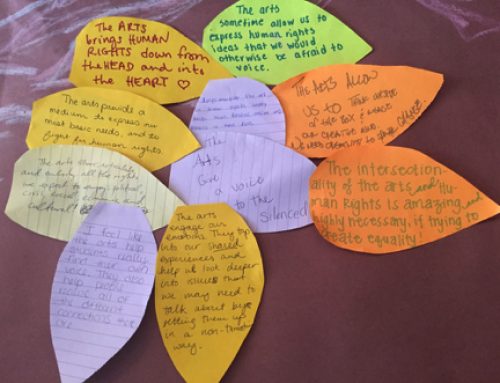 The ARTS
brings HUMAN
RIGHTS down from
the HEAD and into
the HEART ♡
The arts
sometime allow us to
express human rights
ideas that we would
otherwise be afraid to
voice.
The arts provide a
medium to express our
most basic needs, and to
fight for human rights.
The ARTS Allow
US TO THINK
of the box &
our creative
The
Arts
Give a voice
to the
Silenced
The arts
and embody all the rights
we aspire to enjoy: political,
civil, social, economic and
cultural
The intersection-
ality of the arts and Hu-
man Rights is amazing and
highly necessary, if trying to
create equality!
I feel like
the arts help
find our own
voice. They also
help people
realize all of
the different
connections
The arts
engage our
emotions. They tap
into our shared
experiences and
help us look deeper
into issues that
we may need to
talk about by
setting them up
in a non-
way.